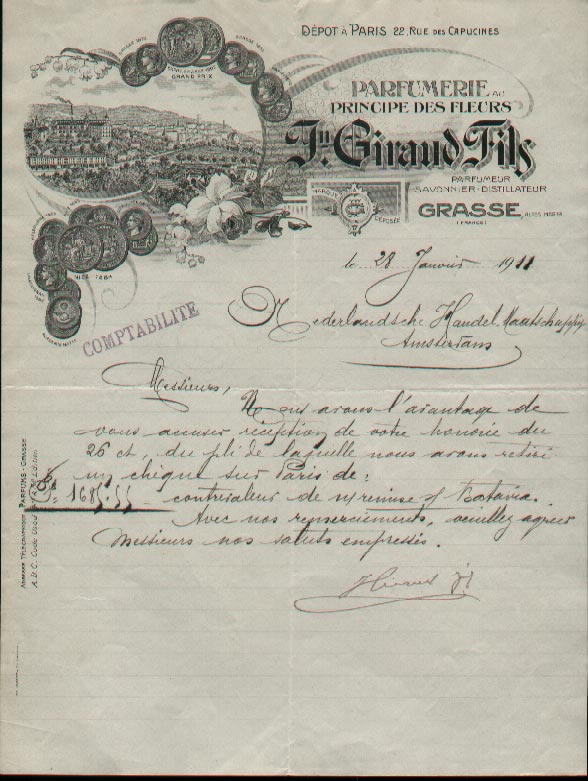 DÉPOT À PARIS 22, RUE DES CAPUCINES
PARFUMERIE AU
PRINCIPE DES FLEURS
Jn. Giraud Fils
PARFUMEUR
SAVONNIER-DISTILLATEUR
MARQUE DÉPOSÉE
GRASSE, ALPES MARIT.
(FRANCE)
GRAND PRIX
NICE 1884
le 28 Janvier 1911
COMPTABILITÉ
Nederlandsche Handel Maatschappij
Amsterdam
Messieurs,
Nous avons l'avantage de
vous accuser réception de votre honorée du
26 ct, du pli de laquelle nous avons retiré
un chèque sur Paris de:
Fs 1685.55 contrevaleur de n/remise s/ Batavia.
Avec nos remerciements, veuillez agréer
Messieurs nos saluts empressés.
Giraud fs
ADRESSE TÉLÉGRAPHIQUE PARFUMS-GRASSE
A.B.C. Code Used Edition